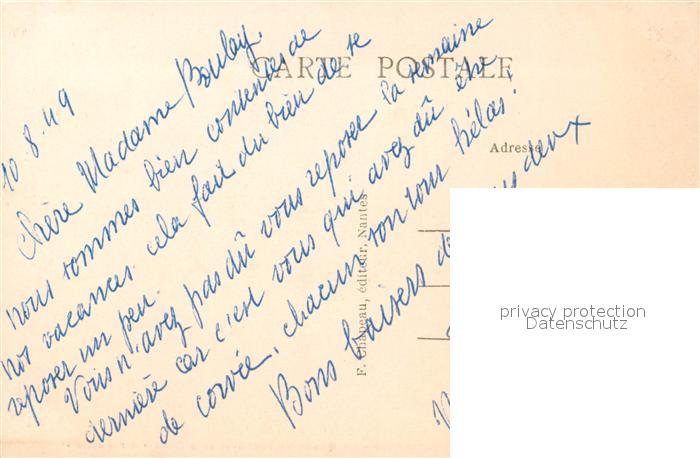 CARTE POSTALE
Adresse
F. Chapeau, éditeur, Nantes
10-8-49
Chère Madame Boulay,
nous sommes bien contentes de
nos vacances cela fait du bien de se
reposer un peu.
Vous n'avez pas dû vous reposer la semaine
dernière car c'est vous qui avez dû être
de corvée, chacun son tour hélas!
Bons baisers de deux
privacy protection
Datenschutz